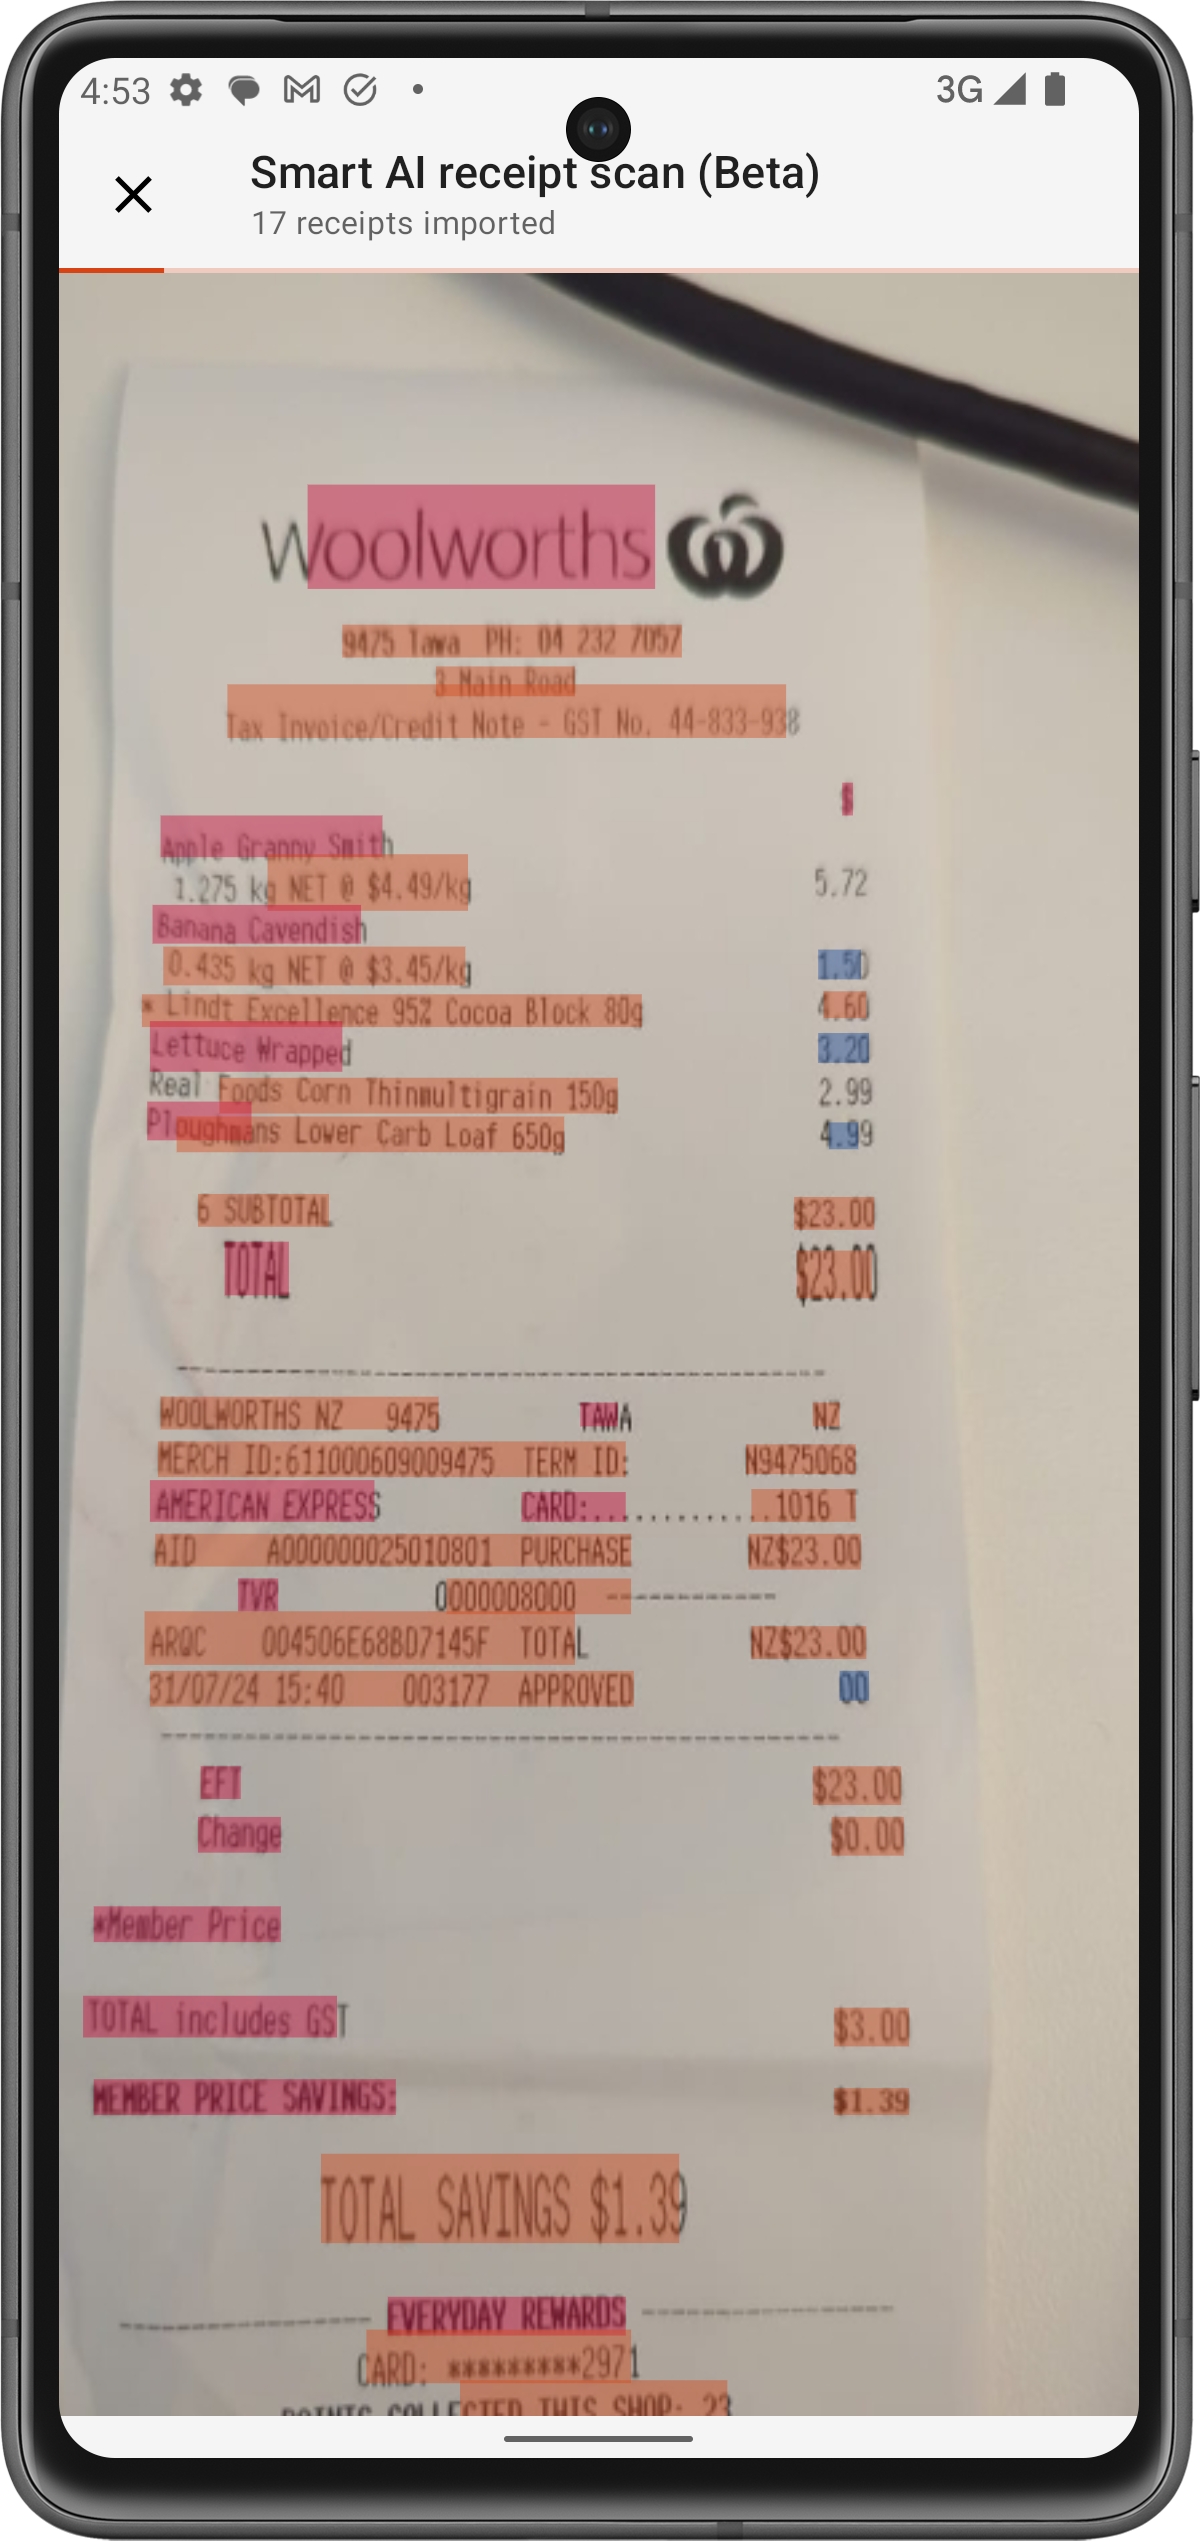 4:53 3G
Smart AI receipt scan (Beta)
17 receipts imported
Woolworths
9475 Tawa PH: 04 232 7057
3 Main Road
Tax Invoice/Credit Note - GST No. 44-833-938
$
Apple Granny Smith
1.275 kg NET @ $4.49/kg 5.72
Banana Cavendish
0.435 kg NET @ $3.45/kg 1.50
* Lindt Excellence 95% Cocoa Block 80g 4.60
Lettuce Wrapped 3.20
Real Foods Corn Thinmultigrain 150g 2.99
Ploughmans Lower Carb Loaf 650g 4.99
6 SUBTOTAL $23.00
TOTAL $23.00
WOOLWORTHS NZ 9475 TAWA NZ
MERCH ID:611000609009475 TERM ID: N9475068
AMERICAN EXPRESS CARD:..............1016 T
AID A000000025010801 PURCHASE NZ$23.00
TVR 0000008000 ------------
ARQC 004506E68BD7145F TOTAL NZ$23.00
31/07/24 15:40 003177 APPROVED 00
EFT $23.00
Change $0.00
*Member Price
TOTAL includes GST $3.00
MEMBER PRICE SAVINGS: $1.39
TOTAL SAVINGS $1.39
EVERYDAY REWARDS
CARD: *********2971
POINTS COLLECTED THIS SHOP: 23